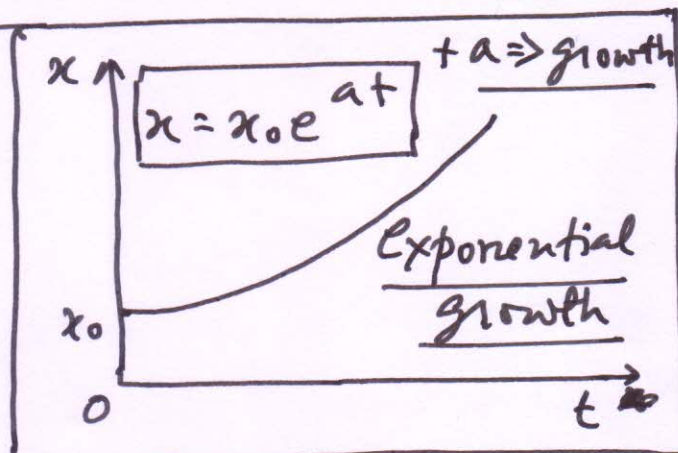 x
x = x₀e^at
+a => growth
exponential
growth
x₀
0
t